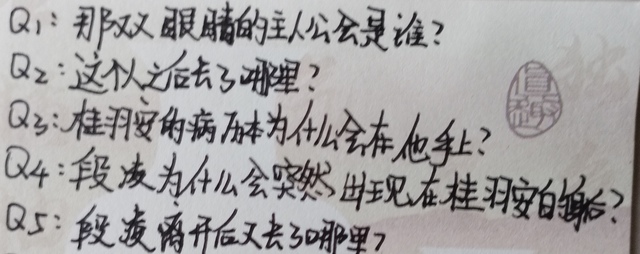 Q1：那双眼睛的主人公会是谁？
Q2：这个人之后去了哪里？
Q3：桂羽安的病历本为什么会在他手上？
Q4：段凌为什么会突然出现在桂羽安的身后？
Q5：段凌离开后又去了哪里？